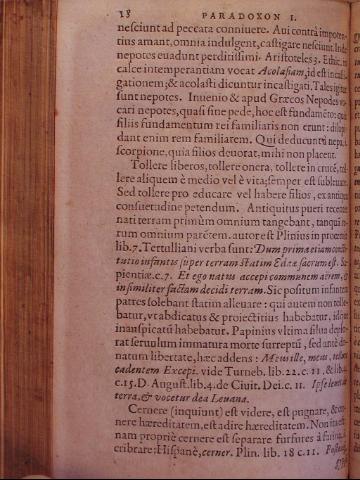 18 PARADOXON I.
nesciunt ad peccata connivere. Aui contrà impoten-
tius amant, omnia indulgent, castigare nesciunt. Inde
nepotes euadunt perditissimi. Aristoteles 3. Ethic. in
calce intemperantiam vocat Acolasiam, id est incasti-
gationem; & acolasti dicuntur incastigati. Tales igitur
sunt nepotes. Inuenio & apud Græcos Nepodes vo-
cari nepotes, quasi sine pede, hoc est fundamēto: quia
filiis fundamentum rei familiaris non erunt: dilapi-
dant enim rem familiarem. Qui deducunt à nepa,
scorpione, quia filios deuorat, mihi non placent.
Tollere liberos, tollere onera, tollere in crucē, tol-
lere aliquem è medio vel è vita; semper est subleuare.
Sed tollere pro educare vel habere filios, ex antiqua
consuetudine petendum. Antiquitus pueri recenter
nati terram primùm omnium tangebant, tanquā re-
rum omnium parētem. autore est Plinius in proœmio
lib. 7. Tertulliani verba sunt: Dum prima etiam consti-
tutio infantis super terram statim Edeæ sacrum est. Sa-
pientiæ. c. 7. Et ego natus accepi communem aërem, &
in similiter factam decidi terram. Sic positum infantem
patres solebant statim alleuare: qui autem non tolle-
batur, vt abdicatus & proiectitius habebatur, idque
inauspicatū habebatur. Papinius vltima silua deplo-
rat seruulum immatura morte surreptū, sed antè do-
natum libertate, hæc addens: Meus ille, meus, tellure
cadentem Excepi. vide Turneb. lib. 22. c. 11, & lib. 4.
c. 15. D. August. lib. 4. de Ciuit. Dei. c. 11. Ipse leuet de
terra, & vocetur dea Leuana.
Cernere (inquiunt) est videre, est pugnare, & cer-
nere hæreditatem, est adire hæreditatem. Non ita est:
nam propriè cernere est separare furfures à farina,
cribrare: Hispanè, cerner. Plin. lib. 18 c. 11.